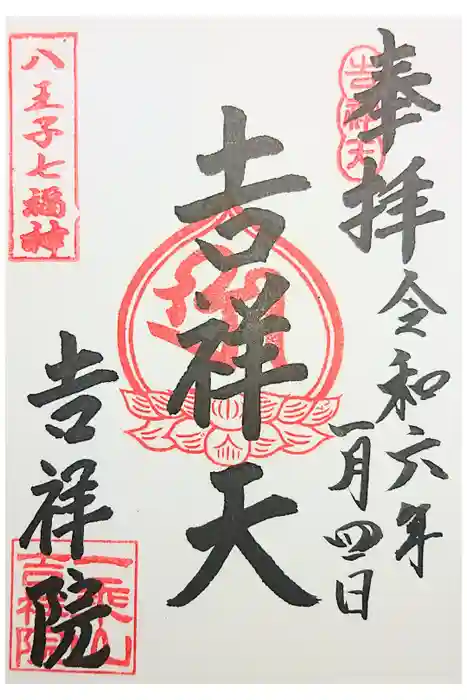 奉拝
令和六年
一月四日
吉祥天
吉祥天
八王子七福神
吉祥院
一乗山
吉祥院